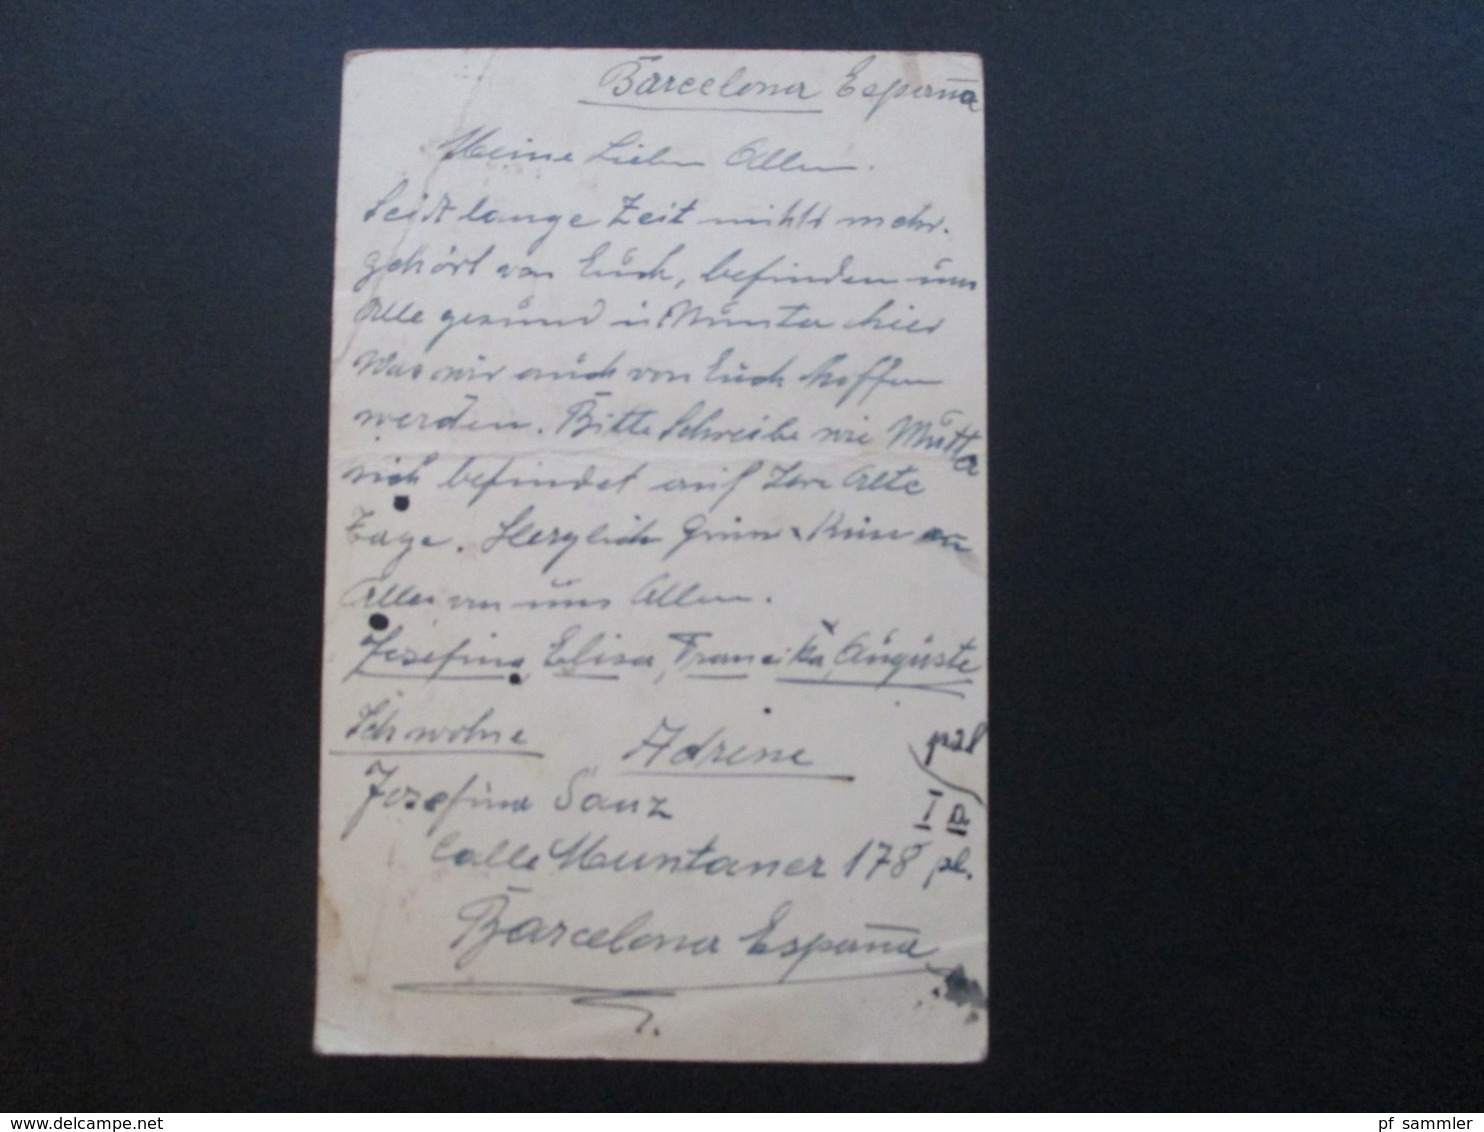 Barcelona España
Meine Lieben Allen.
Seit lange Zeit nichts mehr.
gehört von Eüch, befinden üns
Alle gesünd ü Münter hier
Was wir aüch von Eüch hoffen
werden. Bitte Schreibe wie Mütta
sich befindet aüf Ihre Alte
Tage. Herzlich Grüss Küss an
Allen von üns Allen.
Josefina, Elisa, Franciska, Aügüste
Ich wohne Adresse
Josefina Sanz
I
Calle Muntaner 178 pl.
Barcelona España
pf_sammler